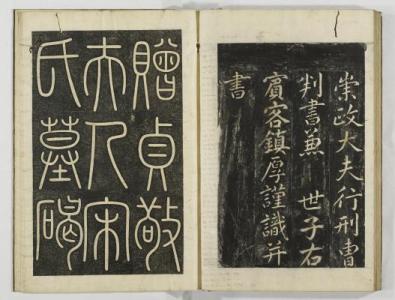 崇政大夫行刑曹
判書兼 世子右
賓客鎭厚謹識并
書
贈貞敬
夫人宋
氏墓碣